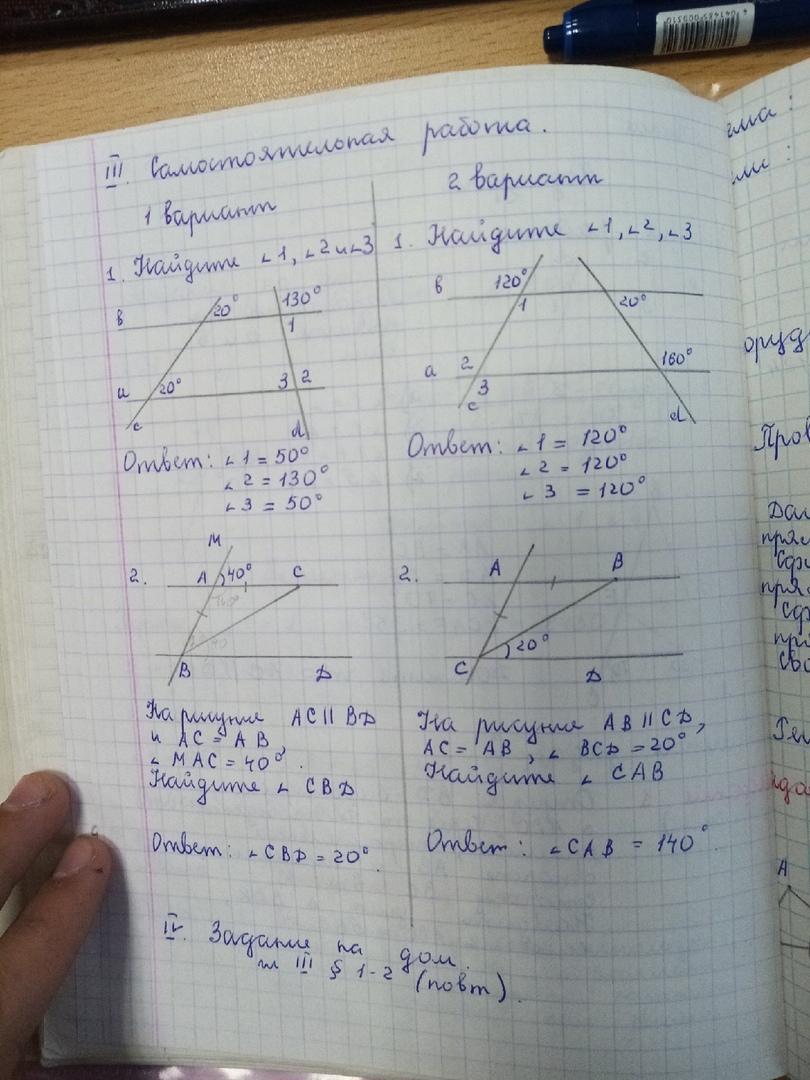 III. Самостоятельная работа.
1 вариант
1. Найдите ∟1, ∟2 и ∟3
в 20° 130°
1
а 20° 3 2
с d
Ответ: ∟1 = 50°
∟2 = 130°
∟3 = 50°
2. M
A 40° C
B D
На рисунке AC || BD
и AC = AB,
∟MAC = 40°.
Найдите ∟CBD
Ответ: ∟CBD = 20°.
2 вариант
1. Найдите ∟1, ∟2, ∟3
в 120° 20°
1
а 2 160°
3
с d
Ответ: ∟1 = 120°
∟2 = 120°
∟3 = 120°
2. A B
C 20° D
На рисунке AB || CD,
AC = AB, ∟BCD = 20°
Найдите ∟CAB
Ответ: ∟CAB = 140°.
IV. Задание на дом.
гл III § 1-2 (повт).
ема:
Пров
Дан
пряс
A